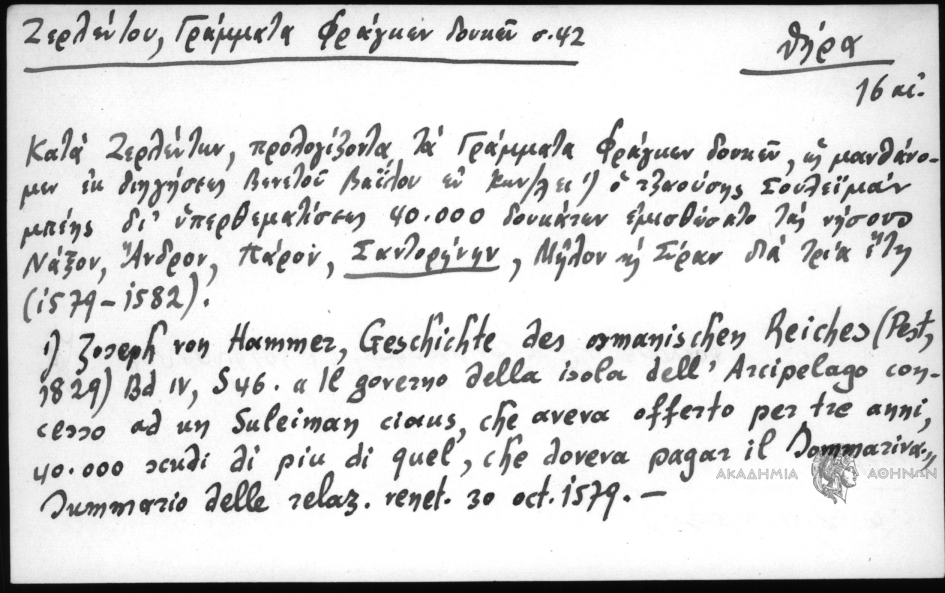 Ζερλέντου, Γράμματα Φράγκων δουκῶν σ. 42
Θήρα
16 αἰ.
Κατὰ Ζερλέντην, προλογίζοντα τὰ Γράμματα Φράγκων δουκῶν, "μανθάνο-
μεν ἐκ διηγήσεως Βενετοῦ Βαΐλου ἐν Κων/λει 1) ὁ τζαούσης Σουλεϊμὰν
μπέης δι' ὑπερθεματίσεως 40.000 δουκάτων ἐμισθώσατο τὰς νήσους
Νάξον, Ἄνδρον, Πάρον, Σαντορήνην, Μῆλον κ Σύραν διὰ τρία ἔτη
(1579-1582).
1) Joseph von Hammer, Geschichte des osmanischen Reiches (Pest,
1829) Bd IV, S 46. « Il governo della isola dell' Arcipelago con-
cesso ad un Suleiman ciaus, che aveva offerto per tre anni,
40.000 scudi di piu di quel, che doveva pagar il
Summario delle relaz. venet. 30 oct. 1579. —
ΑΚΑΔΗΜΙΑ ΑΘΗΝΩΝ